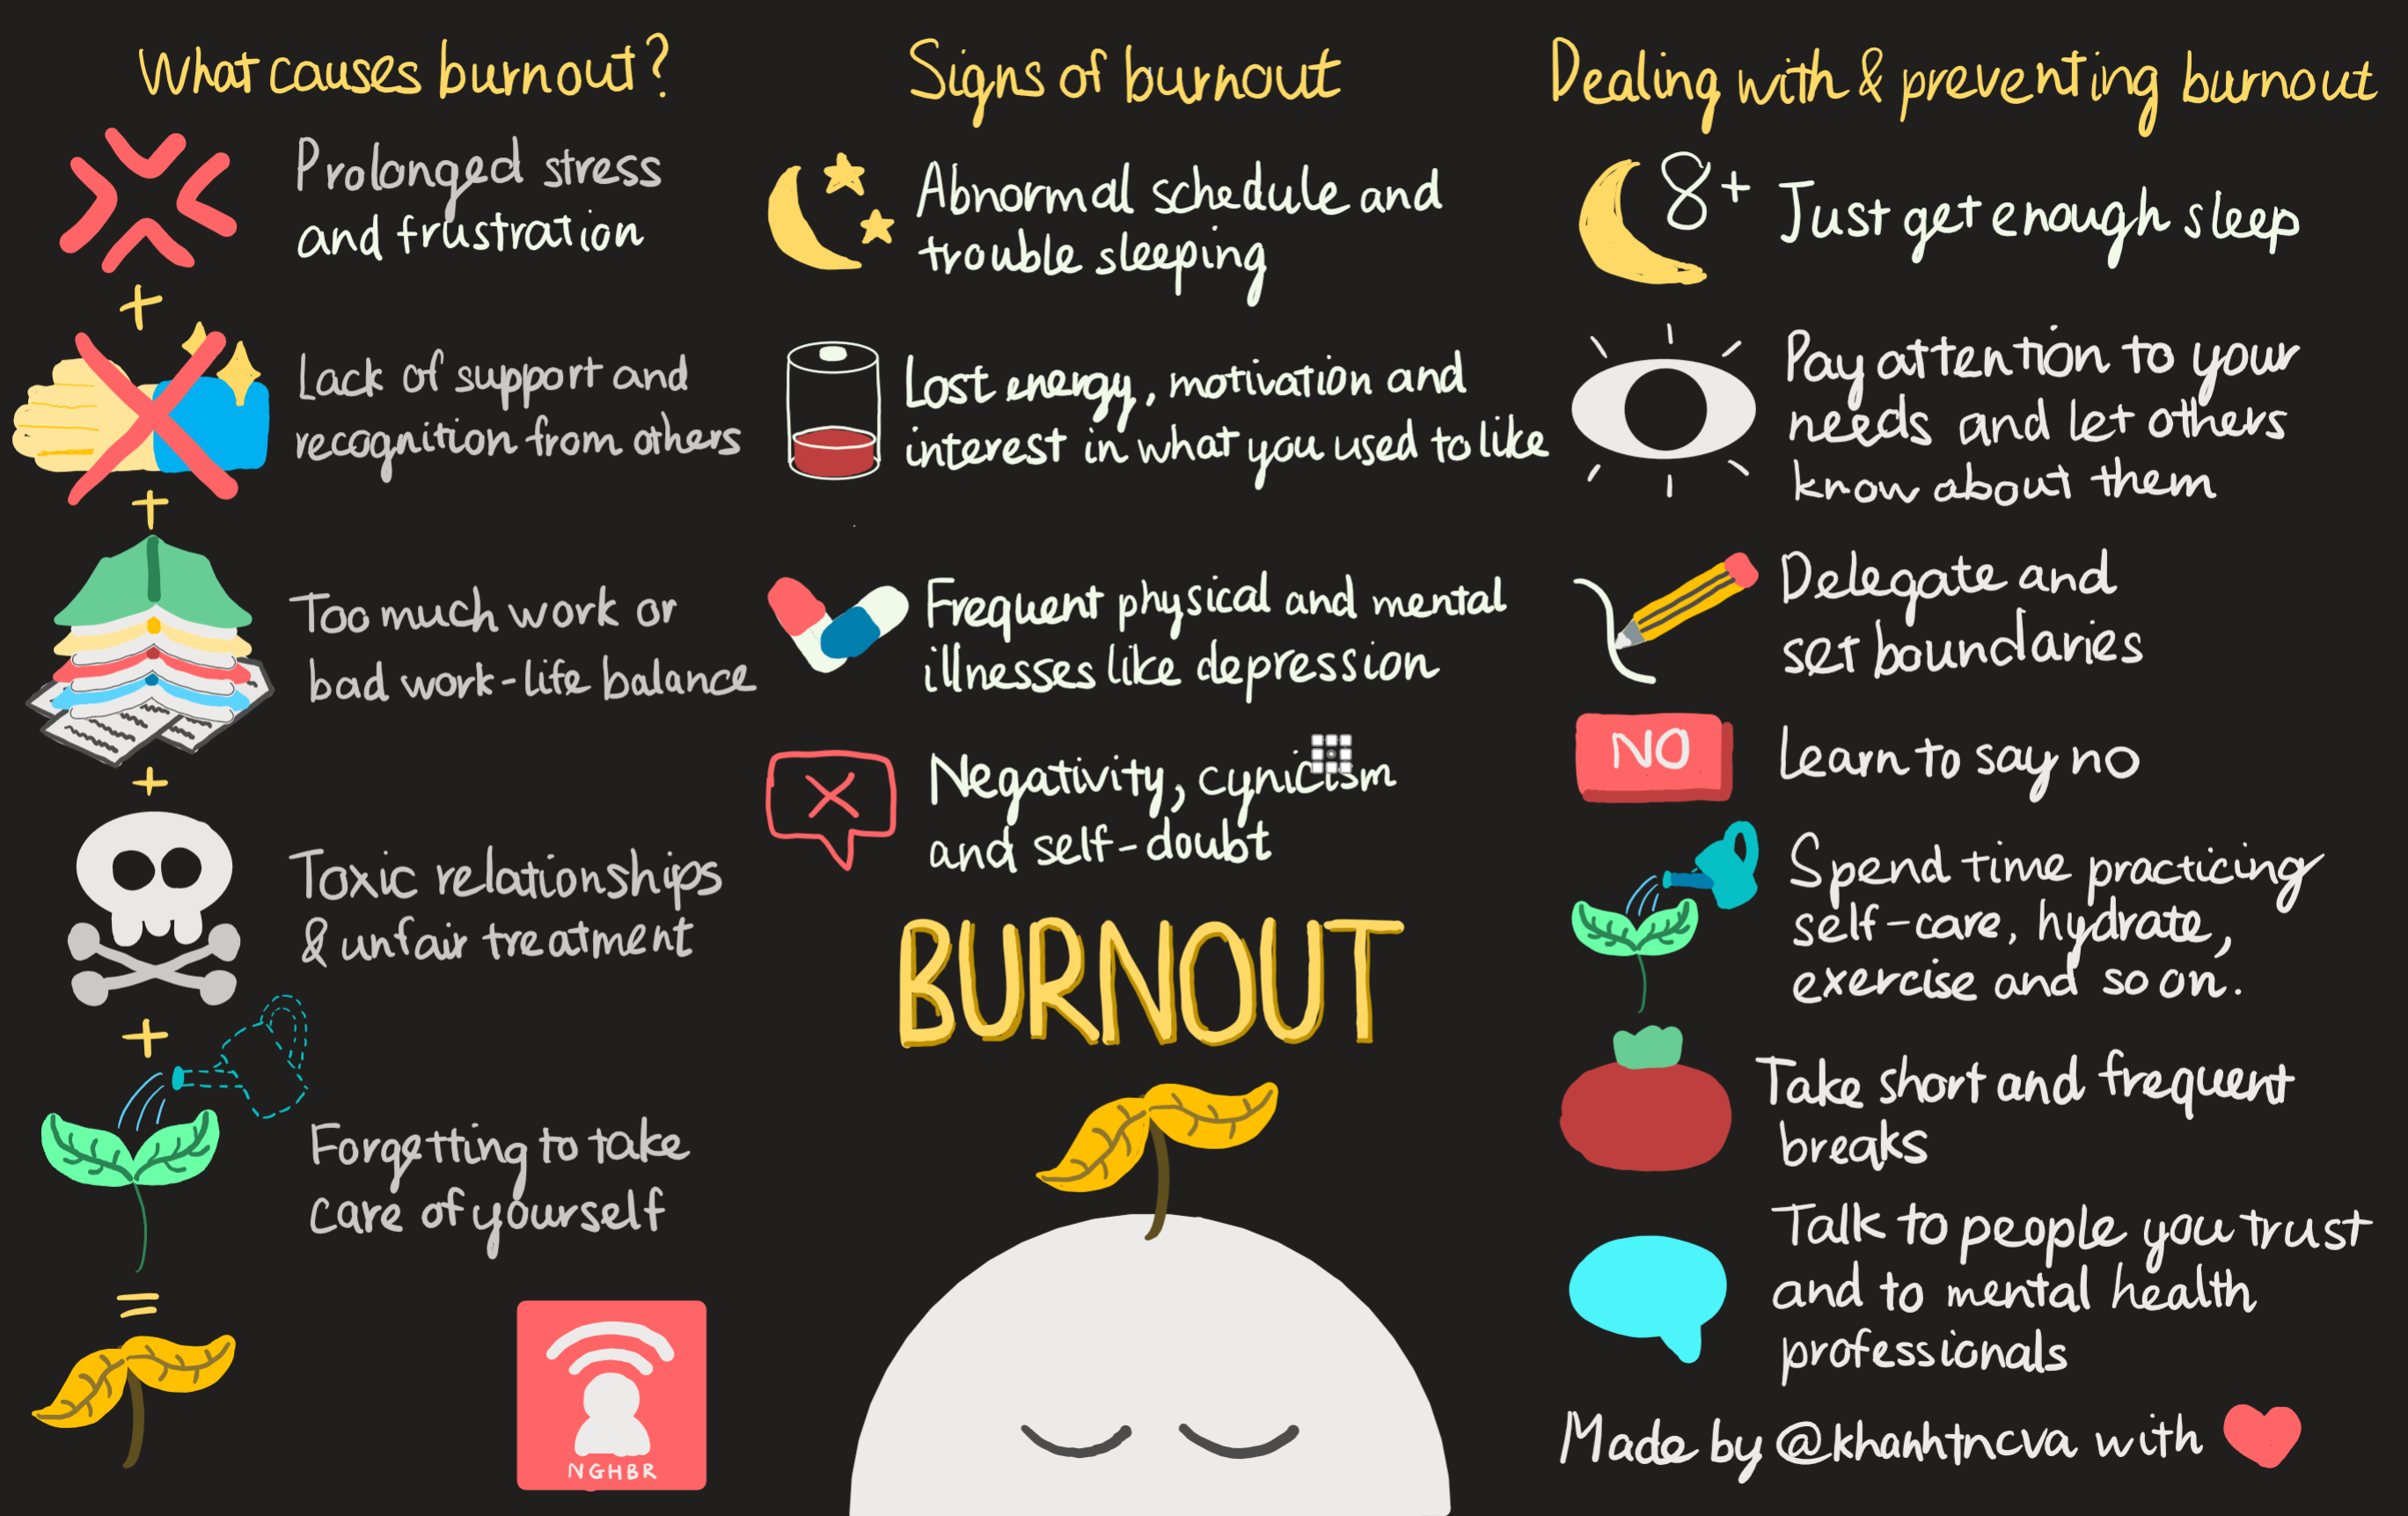 What causes burnout?
Prolonged stress
and frustration
+
Lack of support and
recognition from others
+
Too much work or
bad work-life balance
+
Toxic relationships
& unfair treatment
+
Forgetting to take
care of yourself
=
NGHBR
Signs of burnout
Abnormal schedule and
trouble sleeping
Lost energy, motivation and
interest in what you used to like
Frequent physical and mental
illnesses like depression
Negativity, cynicism
and self-doubt
BURNOUT
Dealing with & preventing burnout
8+
Just get enough sleep
Pay attention to your
needs and let others
know about them
Delegate and
set boundaries
NO
Learn to say no
Spend time practicing
self-care, hydrate,
exercise and so on.
Take short and frequent
breaks
Talk to people you trust
and to mental health
professionals
Made by @khanhtncva with